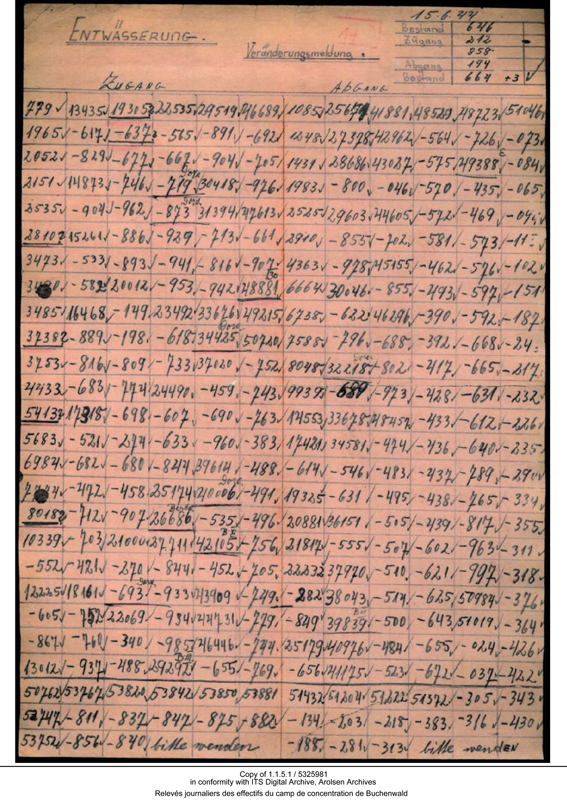 15.6.44
ENTWÄSSERUNG. Bestand 646
Veränderungsmeldung. Zugang 212
858
Abgang 194
Bestand 664 +3
ZUGANG ABGANG
779 13435 19305 22535 29519 46689 1085 41881 48529 48723 51046
1965 -617 -637 -565 -891 -692 1248 27378 42962 -564 -726 -073
2052 -829 -677 -667 -904 -705 1431 28686 43027 -575 49388 -084
2151 14873 -746 -719 30418 -976 1983 -800 -046 -570 -435 -065
2535 -904 -962 -873 31394 47613 2525 29603 44605 -572 -469
28107 15261 -886 -929 -713 -661 2910 -855 -702 -581 -573
3473 -533 -893 -941 -816 -907 4363 -978 45155 -462 -576 -102
-582 20012 -953 -942 48881 6664 30046 -855 -493 -597 -151
3485 16468 -149 23492 33676 49215 6738 -622 46296 -390 -592 -187
37382 -889 -198 -618 34425 50720 7588 -796 -688 -392 -668
3753 -816 -809 -733 37020 -752 8048 32218 -802 -417 -665 -217
4433 -683 -774 24490 -459 -743 9939 -689 -973 -428 -631 -232
54134 17318 -698 -607 -690 -763 14553 33678 48457 -433 -612 -226
5683 -521 -274 -633 -960 -383 17421 34581 -474 -436 -640 -235
6984 -682 -680 -844 39614 -488 -614 -546 -483 -437 -789 -290
-472 -458 25174 40006 -491 19325 -631 -495 -438 -765 -334
80182 -712 -907 26686 -535 -496 20881 36151 -505 -439 -817 -355
10339 -703 21000 27711 42105 -756 21817 -555 -507 -602 -963
-552 -421 -270 -844 -452 -705 22232 37970 -510 -621 -997 -318
12225 18161 -693 -933 43909 -749 -282 38043 -514 -625 50984 -376
-605 -757 22069 -954 44731 -779 -849 39839 -500 -643 51019 -364
-867 -760 -340 -985 46446 -744 25179 40976 -484 -655 -024 -426
13012 -937 -488 29292 -655 -769 -656 41175 -523 -672 -037 -422
50762 53767 53820 53842 53850 53881 51432 51204 51222 51372 -305 -343
52747 -811 -837 -847 -875 -882 -134 -203 -218 -383 -316 -430
53752 -856 -840 bitte wenden -188 -281 -313 bitte wenden
Copy of 1.1.5.1 / 5325981
in conformity with ITS Digital Archive, Arolsen Archives
Relevés journaliers des effectifs du camp de concentration de Buchenwald